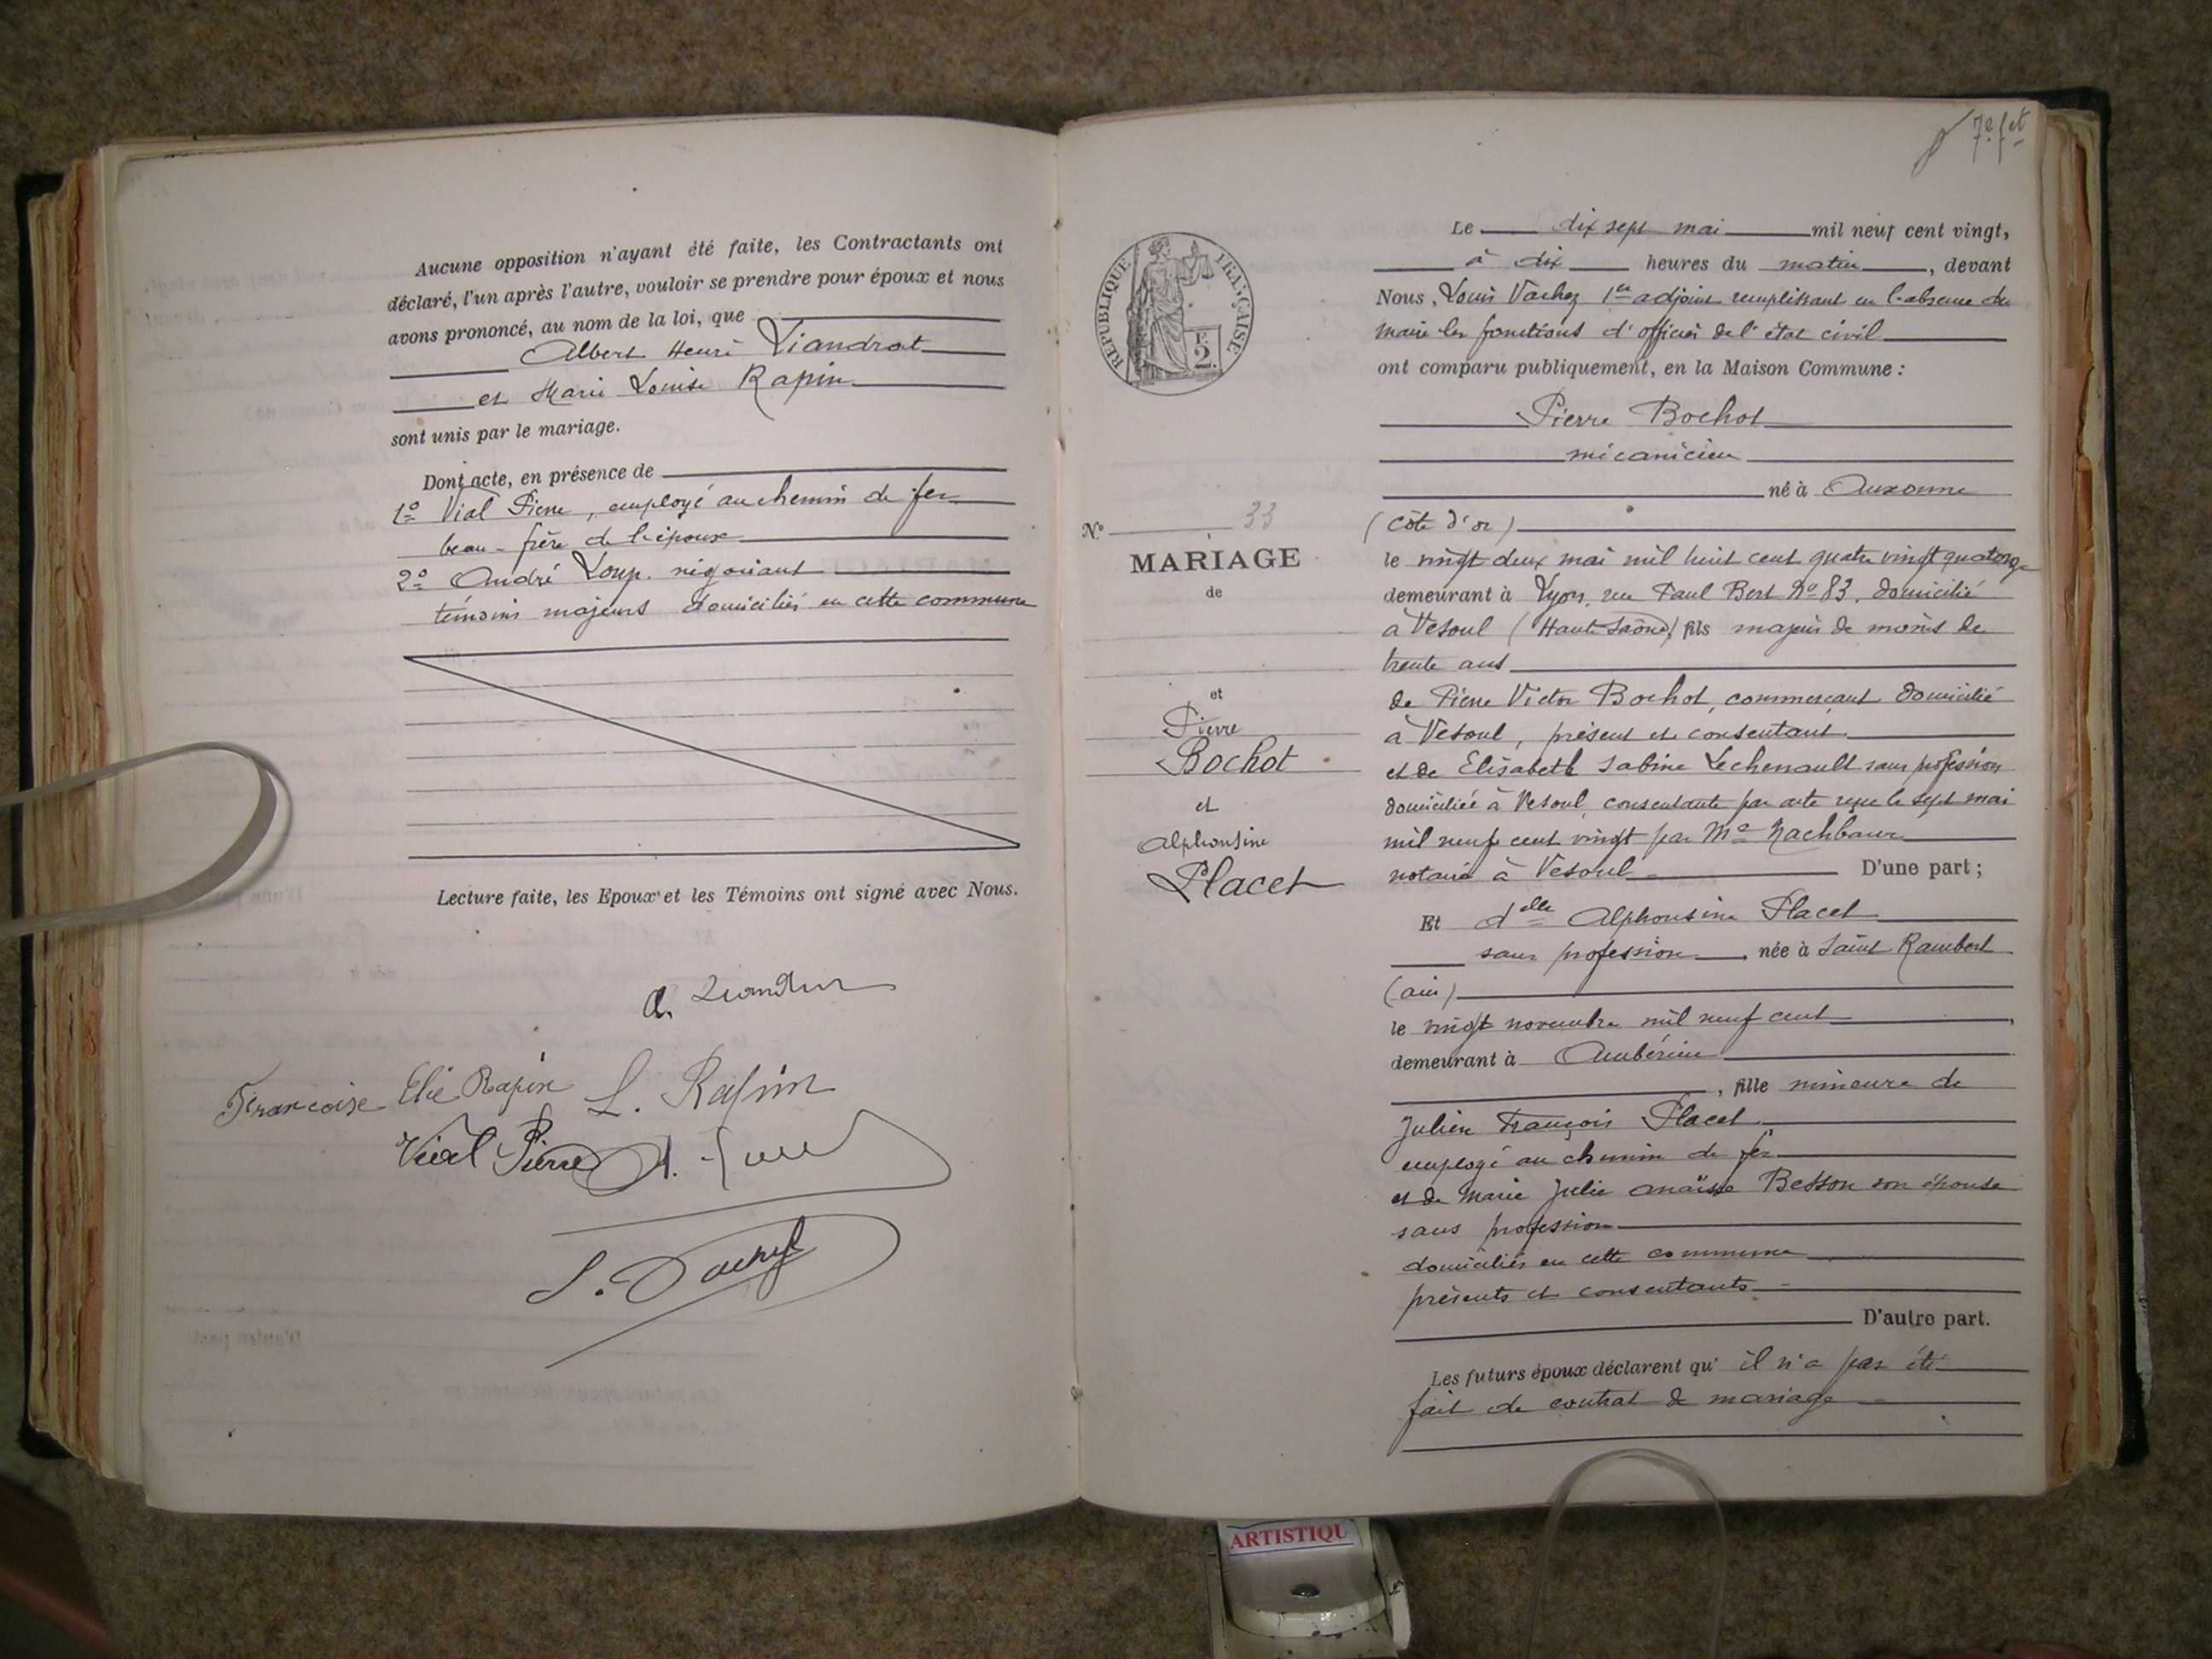 Aucune opposition n'ayant été faite, les Contractants ont
déclaré, l'un après l'autre, vouloir se prendre pour époux et nous
avons prononcé, au nom de la loi, que
Albert Henri Liandrat
et Marie Louise Rapin
sont unis par le mariage.
Dont acte, en présence de
1º Vial Pierre, employé au chemin de fer
beau-frère de l'époux
2º André Loup. négociant
témoins majeurs domiciliés en cette commune
Lecture faite, les Epoux et les Témoins ont signé avec Nous.
A.
Françoise Elie Rapin L. Rapin
Vial Pierre A.
7e fet
REPUBLIQUE FRANÇAISE
F. 2.
Nº 33
MARIAGE
de
et
Pierre
Bochot
et
Alphonsine
Placet
Le dix sept mai mil neuf cent vingt,
à dix heures du matin, devant
Nous, Louis Vachez 1er adjoint remplissant en l'absence du
maire les fonctions d'officier de l'état civil
ont comparu publiquement, en la Maison Commune :
Pierre Bochot
mécanicien
né à Auxonne
(côte d'or)
le vingt deux mai mil huit cent quatre vingt quatorze
demeurant à Lyon, rue Paul Bert Nº 83, domicilié
à Vesoul (Haute Saône) fils majeur de moins de
trente ans
de Pierre Victor Bochot, commerçant domicilié
à Vesoul, présent et consentant.
et de Elisabeth Sabine Lechenault sans profession
domiciliée à Vesoul, consentante par acte reçu le sept mai
mil neuf cent vingt par Me Nachbaur
notaire à Vesoul D'une part ;
Et delle Alphonsine Placet
sans profession, née à Saint Rambert
(ain)
le vingt novembre mil neuf cent,
demeurant à Ambérieu
, fille mineure de
Julien François Placet
employé au chemin de fer
et de Marie Julie Anaïsse Besson son épouse
sans profession
domiciliés en cette commune
présents et consentants
D'autre part.
Les futurs époux déclarent qu'il n'a pas été
fait de contrat de mariage
ARTISTIQU